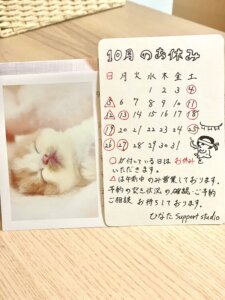 10月のお休み
日 月 火 水 木 金 土
1 2 3 4
5 6 7 8 9 10 11
12 13 14 15 16 17 18
19 20 21 22 23 24 25
26 27 28 29 30 31
○が付いている日はお休み
いただきます。
△は午前中のみ営業しております。
予約の空き状況の確認・ご予約
ご相談 お待ちしております。
ひなた Support studio